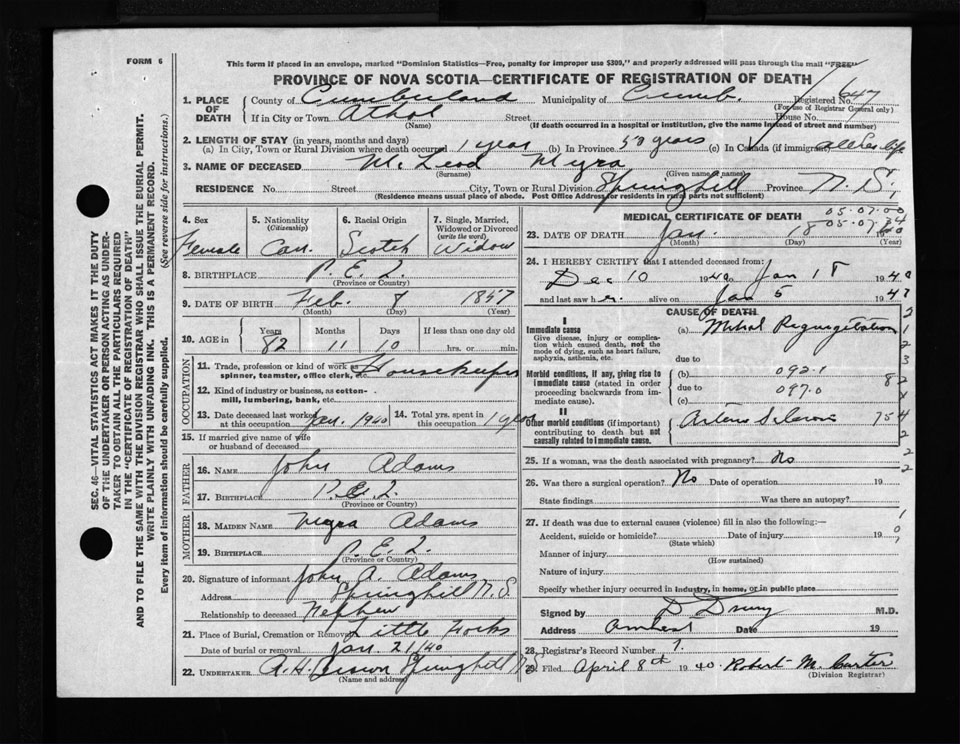 FORM 6
This form if placed in an envelope, marked "Dominion Statistics—Free, penalty for improper use $300," and properly addressed will pass through the mail "FREE"
PROVINCE OF NOVA SCOTIA—CERTIFICATE OF REGISTRATION OF DEATH
SEC. 46—VITAL STATISTICS ACT MAKES IT THE DUTY
OF THE UNDERTAKER OR PERSON ACTING AS UNDER-
TAKER TO OBTAIN ALL THE PARTICULARS REQUIRED
IN THE "CERTIFICATE OF REGISTRATION OF DEATH"
AND TO FILE THE SAME WITH THE DIVISION REGISTRAR WHO SHALL ISSUE THE BURIAL PERMIT.
WRITE PLAINLY WITH UNFADING INK. THIS IS A PERMANENT RECORD.
Every item of information should be carefully supplied. (See reverse side for instructions.)
1. PLACE OF DEATH County of Cumberland Municipality of Cumb. Registered No. 647
(For use of Registrar General only)
If in City or Town Athol Street House No.
(Name) (If death occurred in a hospital or institution, give the name instead of street and number)
2. LENGTH OF STAY (in years, months and days)
(a) In City, Town or Rural Division where death occurred 1 year (b) In Province 50 years (c) In Canada (if immigrant) all her life
3. NAME OF DECEASED McLeod Myra
(Surname) (Given name or names)
RESIDENCE No. Street City, Town or Rural Division Springhill Province N.S.
(Residence means usual place of abode. Post Office Address for residents in rural parts not sufficient)
4. Sex Female
5. Nationality (Citizenship) Can.
6. Racial Origin Scotch
7. Single, Married, Widowed or Divorced (write the word) Widow
8. BIRTHPLACE P.E.I.
(Province or Country)
9. DATE OF BIRTH Feb. 8 1857
(Month) (Day) (Year)
10. AGE in Years 82 Months 11 Days 10 If less than one day old hrs. or min.
OCCUPATION
11. Trade, profession or kind of work as spinner, teamster, office clerk, etc. Housekeeper
12. Kind of industry or business, as cotton-mill, lumbering, bank, etc.
13. Date deceased last worked at this occupation Jan. 1940 14. Total yrs. spent in this occupation 1 year
15. If married give name of wife or husband of deceased
FATHER
16. NAME John Adams
17. BIRTHPLACE P.E.I.
(Province or Country)
MOTHER
18. MAIDEN NAME Myra Adams
19. BIRTHPLACE P.E.I.
(Province or Country)
20. Signature of informant John A. Adams
Address Springhill N.S.
Relationship to deceased Nephew
21. Place of Burial, Cremation or Removal Little Forks
Date of burial or removal Jan. 21/40
22. UNDERTAKER A.H. Brown Springhill N.S
(Name and address)
MEDICAL CERTIFICATE OF DEATH
05.07.00
05.07.34
23. DATE OF DEATH Jan. 18 1940
(Month) (Day) (Year)
24. I HEREBY CERTIFY that I attended deceased from:
Dec 10 1940 to Jan 18 1940
and last saw her alive on Jan 5 1947
CAUSE OF DEATH
I
Immediate cause (a) Mitral Regurgitation
Give disease, injury or complication which caused death, not the mode of dying, such as heart failure, asphyxia, asthenia, etc. due to
Morbid conditions, if any, giving rise to immediate cause (stated in order proceeding backwards from immediate cause). (b) 092.1
due to 097.0
(c)
II
Other morbid conditions (if important) contributing to death but not causally related to immediate cause. Arterio Sclerosis
25. If a woman, was the death associated with pregnancy? No
26. Was there a surgical operation? No Date of operation 19
State findings Was there an autopsy?
27. If death was due to external causes (violence) fill in also the following:—
Accident, suicide or homicide? Date of injury 19
(State which)
Manner of injury
(How sustained)
Nature of injury
Specify whether injury occurred in industry, in home, or in public place
Signed by D Drury M.D.
Address Amherst Date 19
28. Registrar's Record Number 7.
29. Filed April 8th 1940 Robert M. Carter
(Division Registrar)